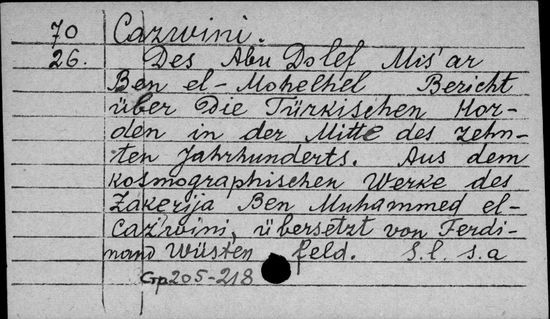 70 Cazwini.
26. Des Abu Dolef Mis'ar
Ben el-Mohelhel Bericht
über die Türkischen Hor-
den in der Mitte des zehn-
ten Jahrhunderts. Aus dem
kosmographischen Werke des
Zakerija Ben Muhammed el-
Cazwini, übersetzt von Ferdi-
nand Wüstenfeld. S.l. s.a
Стр205-218